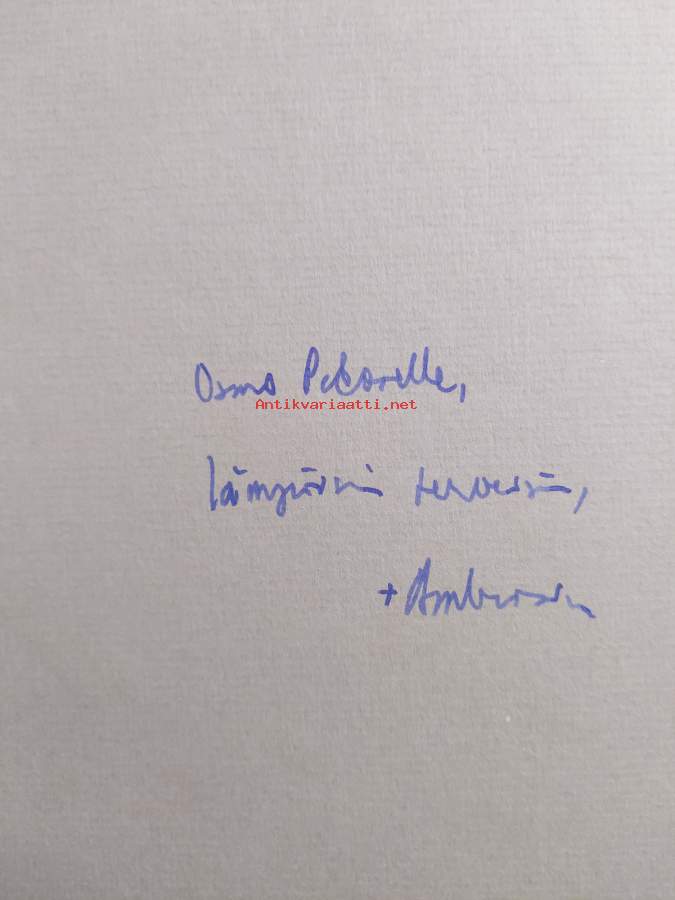 Osmo Pekorelle,
Antikvariaatti.net
lämpimin terveisin,
+ Ambrosius